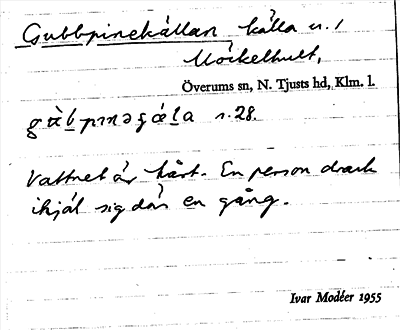 Gubbpinekällan källa u. /
Möckelhult,
Överums sn, N. Tjusts hd, Klm. l.
s. 28.
Vattnet är hårt. En person drack
ihjäl sig där en gång.
Ivar Modéer 1955